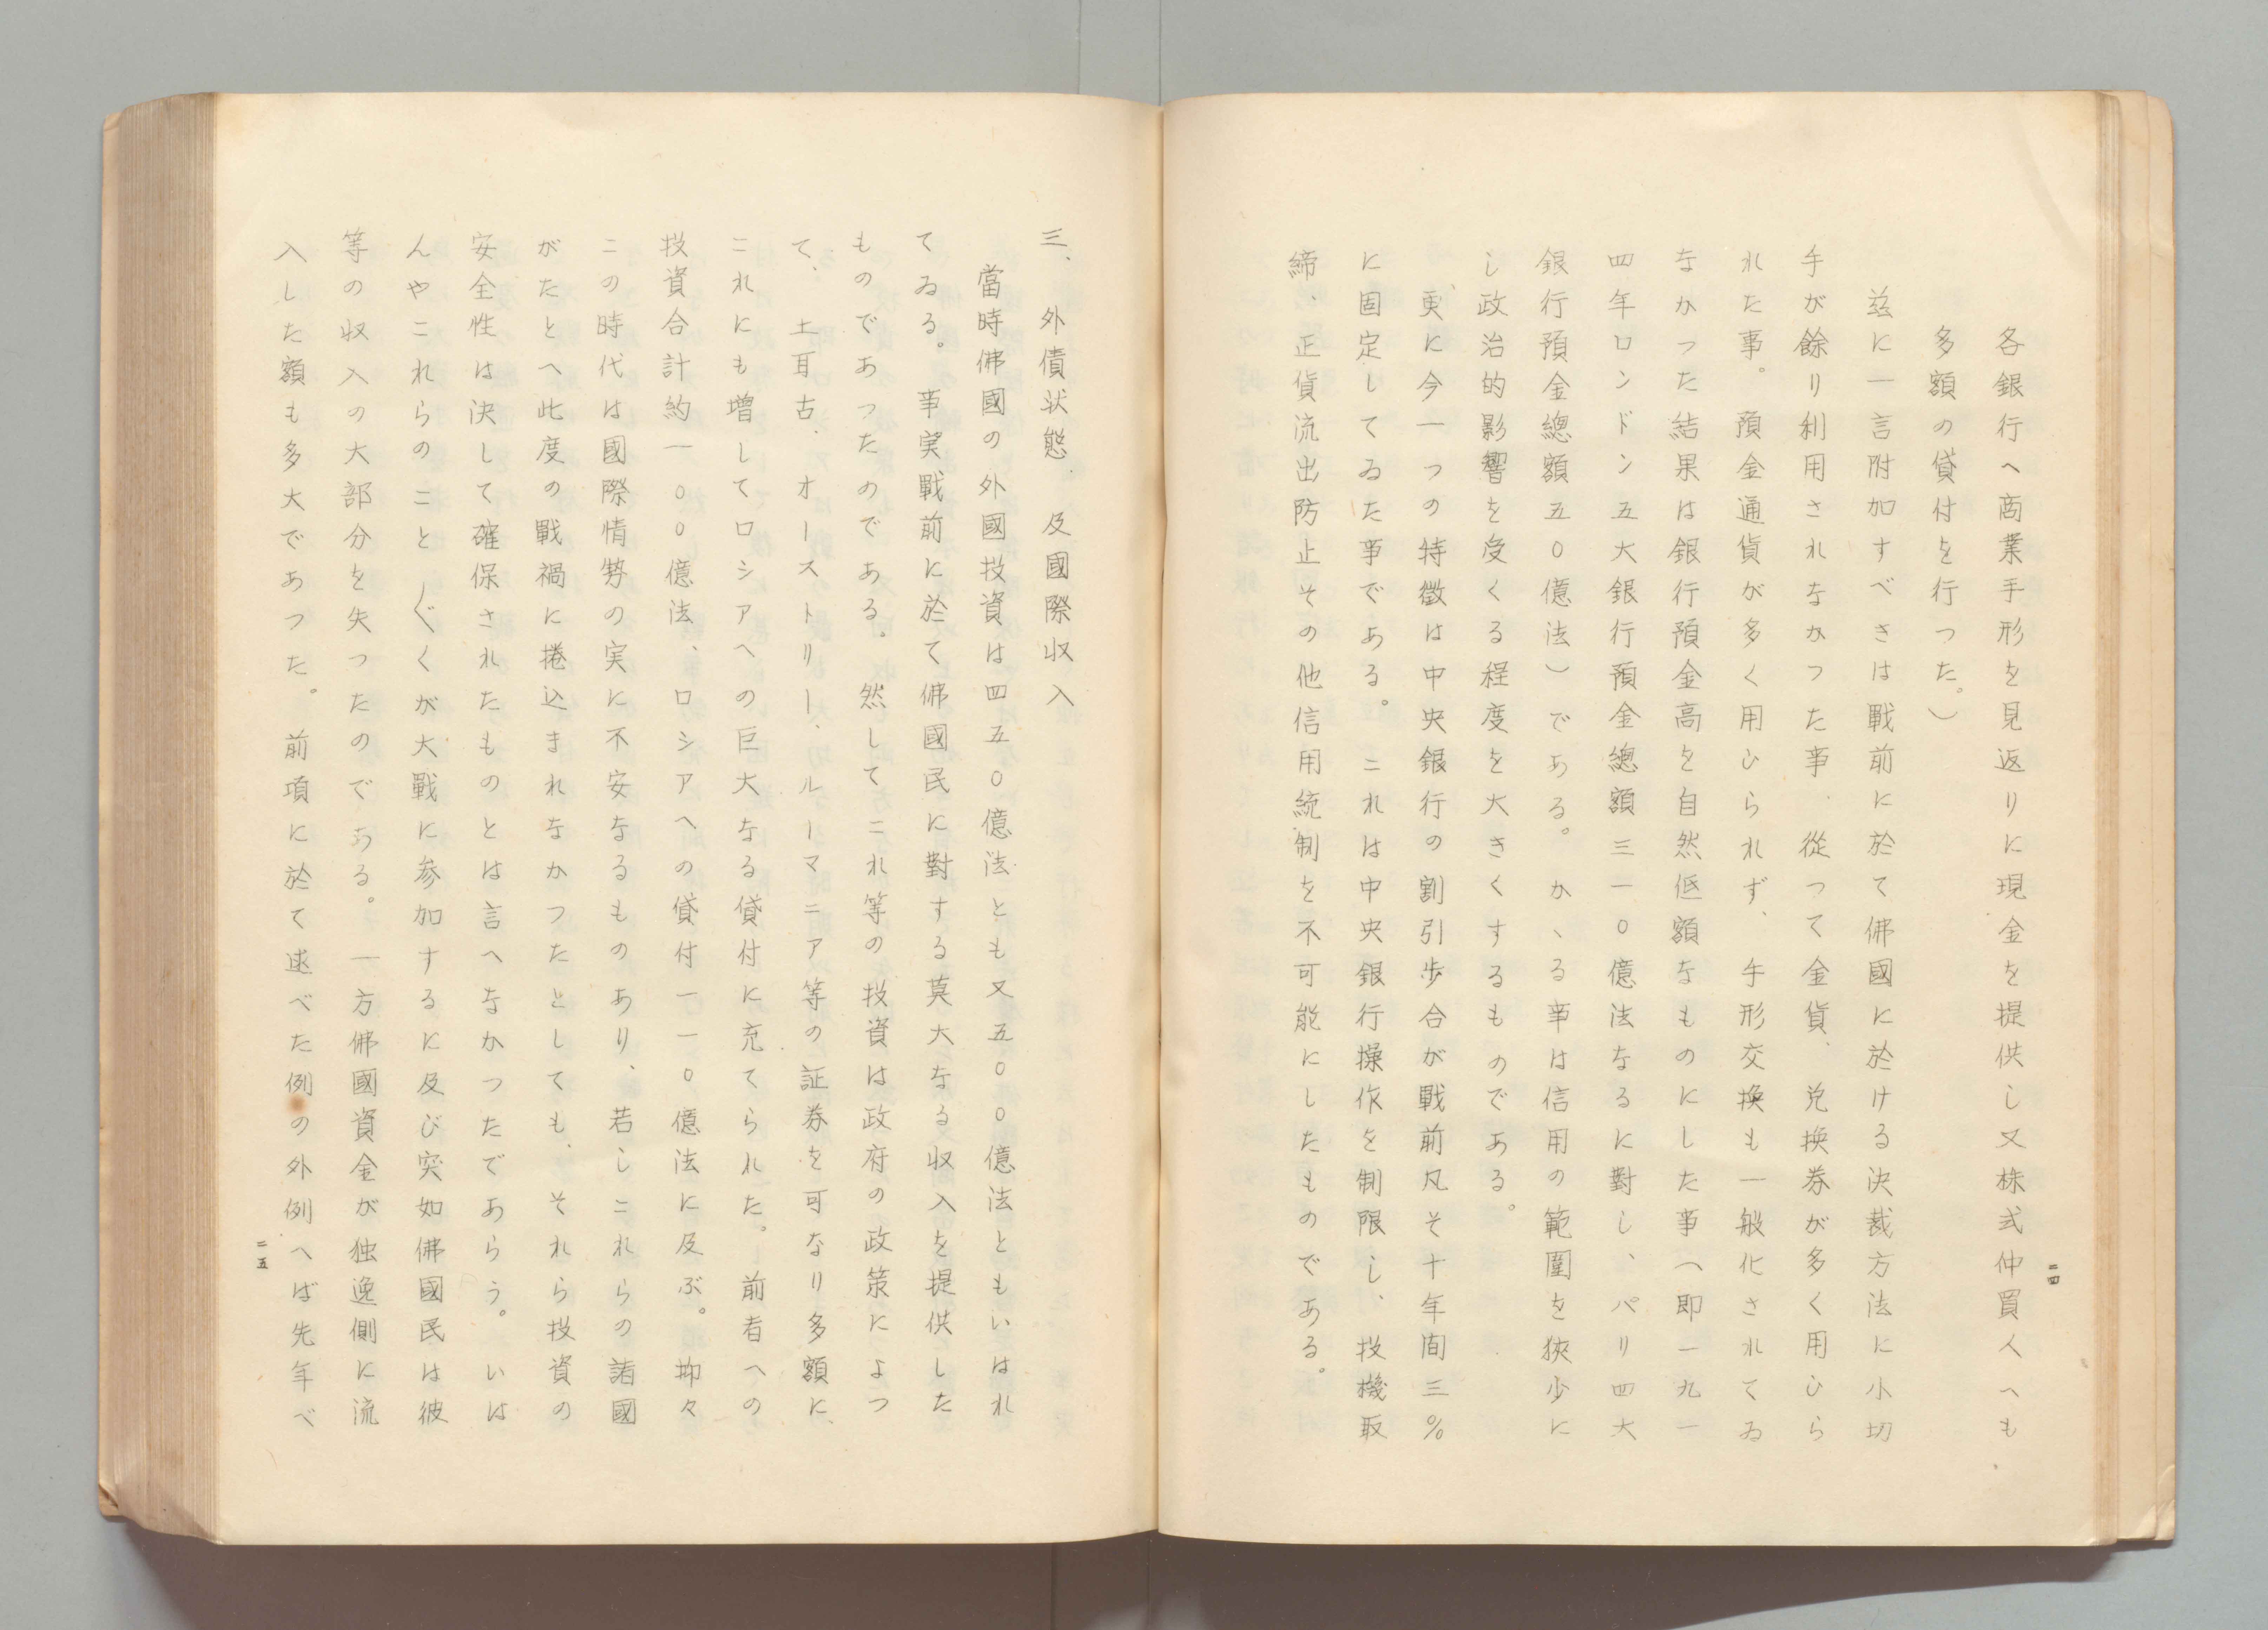 各銀行へ商業手形を見返りに現金を提供し又株式仲買人へも
多額の貸付を行つた。）
茲に一言附加すべきは戰前に於て佛國に於ける決裁方法に小切
手が餘り利用されなかつた事、從つて金貨、兌換券が多く用ひら
れた事。預金通貨が多く用ひられず、手形交換も一般化されてゐ
なかつた結果は銀行預金高を自然低額なものにした事（即一九一
四年ロンドン五大銀行預金總額三一〇億法なるに對し、パリ四大
銀行預金總額五〇億法）である。かゝる事は信用の範圍を狹少に
し政治的影響を受くる程度を大きくするものである。
更に今一つの特徴は中央銀行の割引歩合が戰前凡そ十年間三％
に固定してゐた事である。これは中央銀行操作を制限し、投機取
締、正貨流出防止その他信用統制を不可能にしたものである。
二四
三、外債状態及國際収入
當時佛國の外國投資は四五〇億法とも又五〇〇億法ともいはれ
てゐる。事実戰前に於て佛國民に對する莫大なる収入を提供した
ものであつたのである。然してこれ等の投資は政府の政策によつ
て、土耳古、オーストリー、ルーマニア等の証券を可なり多額に、
これにも増してロシアへの巨大なる貸付に充てられた。前者への
投資合計約一〇〇億法、ロシアへの貸付一一〇億法に及ぶ。抑々
この時代は國際情勢の実に不安なるものあり、若しこれらの諸國
がたとへ此度の戰禍に捲込まれなかつたとしても、それら投資の
安全性は決して確保されたものとは言へなかつたであらう。いは
んやこれらのこと〴〵くが大戰に参加するに及び突如佛國民は彼
等の収入の大部分を失つたのである。一方佛國資金が独逸側に流
入した額も多大であつた。前項に於て述べた例の外例へば先年べ
二五